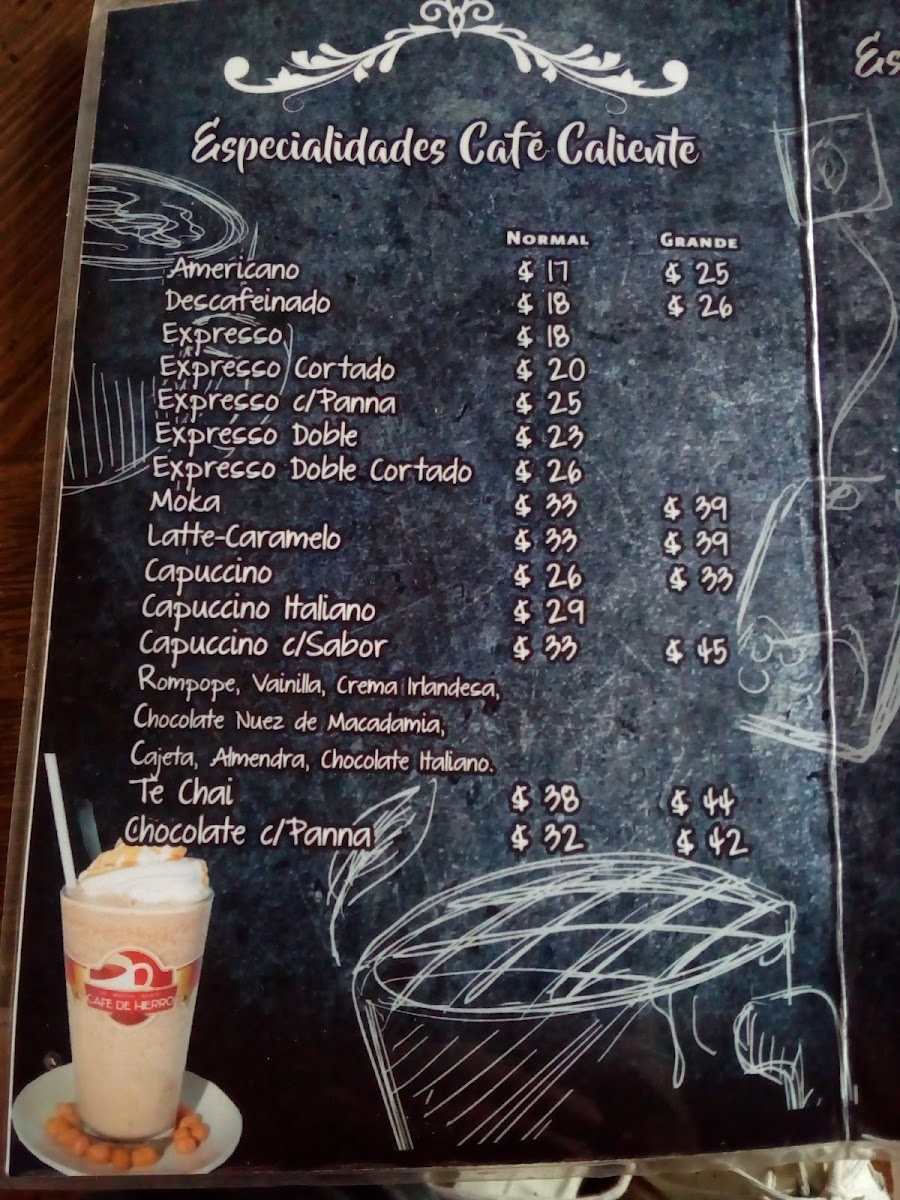 Especialidades Café Caliente
Es
NORMAL GRANDE
Americano $ 17 $ 25
Descafeinado $ 18 $ 26
Expresso $ 18
Expresso Cortado $ 20
Expresso c/Panna $ 25
Expresso Doble $ 23
Expresso Doble Cortado $ 26
Moka $ 33 $ 39
Latte-Caramelo $ 33 $ 39
Capuccino $ 26 $ 33
Capuccino Italiano $ 29
Capuccino c/Sabor $ 33 $ 45
Rompope, Vainilla, Crema Irlandesa,
Chocolate Nuez de Macadamia,
Cajeta, Almendra, Chocolate Italiano.
Te Chai $ 38 $ 44
Chocolate c/Panna $ 32 $ 42
CAFE DE HIERRO